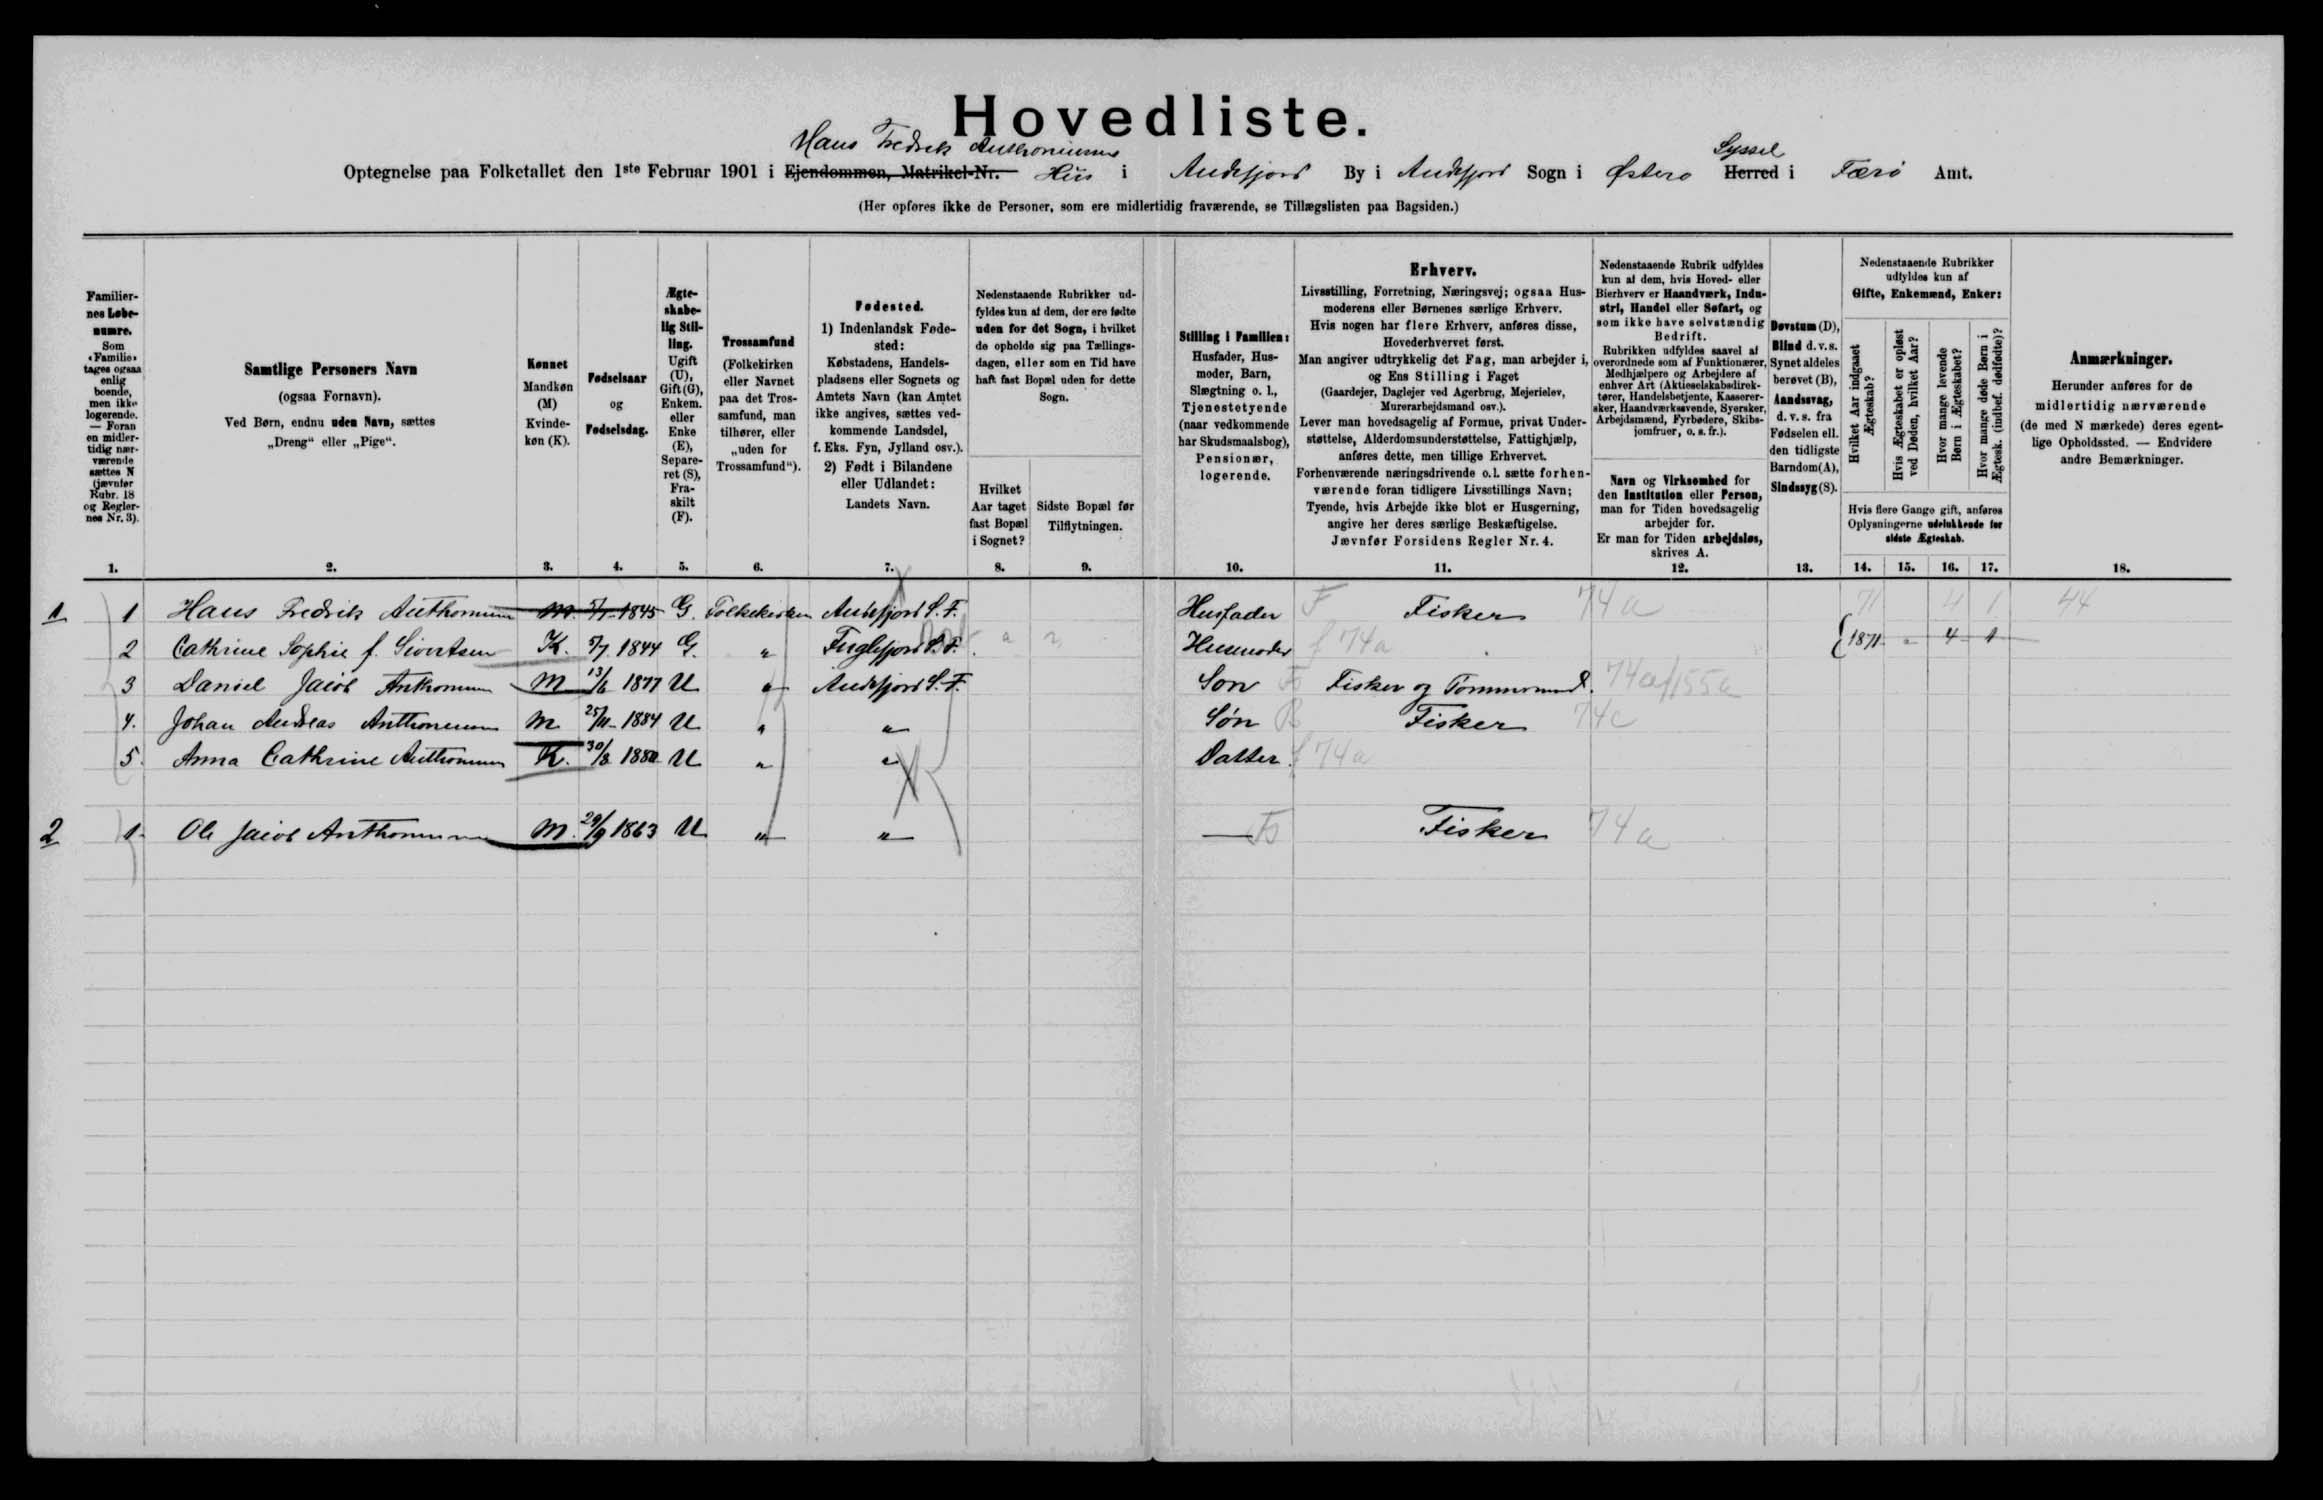 Hovedliste.
Hans Fredrik Anthoniusens
Syssel
Optegnelse paa Folketallet den 1ste Februar 1901 i Ejendommen, Matrikel-Nr. Hus i Andefjord By i Andefjord Sogn i Østerø Herred i Færø Amt.
(Her opføres ikke de Personer, som ere midlertidig fraværende, se Tillægslisten paa Bagsiden.)
Familiernes Løbenumre.
Som «Familie» tages ogsaa enlig boende, men ikke logerende. — Foran en midlertidig nærværende sættes N (jævnfør Rubr. 18 og Reglernes Nr. 3).
1.
Samtlige Personers Navn
(ogsaa Fornavn).
Ved Børn, endnu uden Navn, sættes
„Dreng“ eller „Pige“.
2.
Kønnet
Mandkøn
(M)
Kvindekøn (K).
3.
Fødselsaar
og
Fødselsdag.
4.
Ægteskabelig Stilling.
Ugift (U), Gift (G), Enkem. eller Enke (E), Separeret (S), Fraskilt (F).
5.
Trossamfund
(Folkekirken eller Navnet paa det Trossamfund, man tilhører, eller „uden for Trossamfund“).
6.
Fødested.
1) Indenlandsk Fødested:
Købstadens, Handelspladsens eller Sognets og Amtets Navn (kan Amtet ikke angives, sættes vedkommende Landsdel, f. Eks. Fyn, Jylland osv.).
2) Født i Bilandene eller Udlandet:
Landets Navn.
7.
Nedenstaaende Rubrikker udfyldes kun af dem, der ere fødte uden for det Sogn, i hvilket de opholde sig paa Tællingsdagen, eller som en Tid have haft fast Bopæl uden for dette Sogn.
Hvilket Aar taget fast Bopæl i Sognet?
8.
Sidste Bopæl før Tilflytningen.
9.
Stilling i Familien:
Husfader, Husmoder, Barn, Slægtning o. l., Tjenestetyende (naar vedkommende har Skudsmaalsbog), Pensionær, logerende.
10.
Erhverv.
Livsstilling, Forretning, Næringsvej; ogsaa Husmoderens eller Børnenes særlige Erhverv.
Hvis nogen har flere Erhverv, anføres disse, Hovederhvervet først.
Man angiver udtrykkelig det Fag, man arbejder i, og Ens Stilling i Faget
(Gaardejer, Daglejer ved Agerbrug, Mejerielev, Murerarbejdsmand osv.).
Lever man hovedsagelig af Formue, privat Understøttelse, Alderdomsunderstøttelse, Fattighjælp, anføres dette, men tillige Erhvervet.
Forhenværende næringsdrivende o. l. sætte forhenværende foran tidligere Livsstillings Navn;
Tyende, hvis Arbejde ikke blot er Husgerning, angive her deres særlige Beskæftigelse.
Jævnfør Forsidens Regler Nr. 4.
11.
Nedenstaaende Rubrik udfyldes kun af dem, hvis Hoved- eller Bierhverv er Haandværk, Industri, Handel eller Søfart, og som ikke have selvstændig Bedrift.
Rubrikken udfyldes saavel af overordnede som af Funktionærer, Medhjælpere og Arbejdere af enhver Art (Aktieselskabsdirektører, Handelsbetjente, Kasserersker, Haandværkssvende, Syersker, Arbejdsmænd, Fyrbødere, Skibsjomfruer, o. s. fr.).
Navn og Virksomhed for den Institution eller Person, man for Tiden hovedsagelig arbejder for.
Er man for Tiden arbejdsløs, skrives A.
12.
Døvstum (D), Blind d. v. s. Synet aldeles berøvet (B), Aandssvag, d. v. s. fra Fødselen ell. den tidligste Barndom (A), Sindssyg (S).
13.
Nedenstaaende Rubrikker udfyldes kun af
Gifte, Enkemænd, Enker:
Hvilket Aar indgaaet Ægteskab?
Hvis Ægteskabet er opløst ved Døden, hvilket Aar?
Hvor mange levende Børn i Ægteskabet?
Hvor mange døde Børn i Ægtesk. (indbef. dødfødte)?
Hvis flere Gange gift, anføres Oplysningerne udelukkende for sidste Ægteskab.
14. 15. 16. 17.
Anmærkninger.
Herunder anføres for de midlertidig nærværende (de med N mærkede) deres egentlige Opholdssted. — Endvidere andre Bemærkninger.
18.
1 1 Hans Fredrik Anthoniusen M. 5/7 1845 G. Folkekirken Andefjord S. F. Husfader F Fisker 74a 71 4 1 44
2 Cathrine Sophie f. Sivertsen K. 5/7 1844 G. " Fuglefjord S. F. Husmoder f 74a 1871 " 4 1
3 Daniel Jacob Anthoniusen M 13/6 1877 U " Andefjord S. F. Søn Fisker og Tømmermand. 74a/155a
4. Johan Andreas Anthoniusen M 25/11 1884 U " " Søn Fisker 74c
5. Anna Cathrine Anthoniusen K. 30/8 1880 U " " Datter. f 74a
2 1. Ole Jacob Anthoniusen M. 29/9 1863 U " " — Fisker 74a